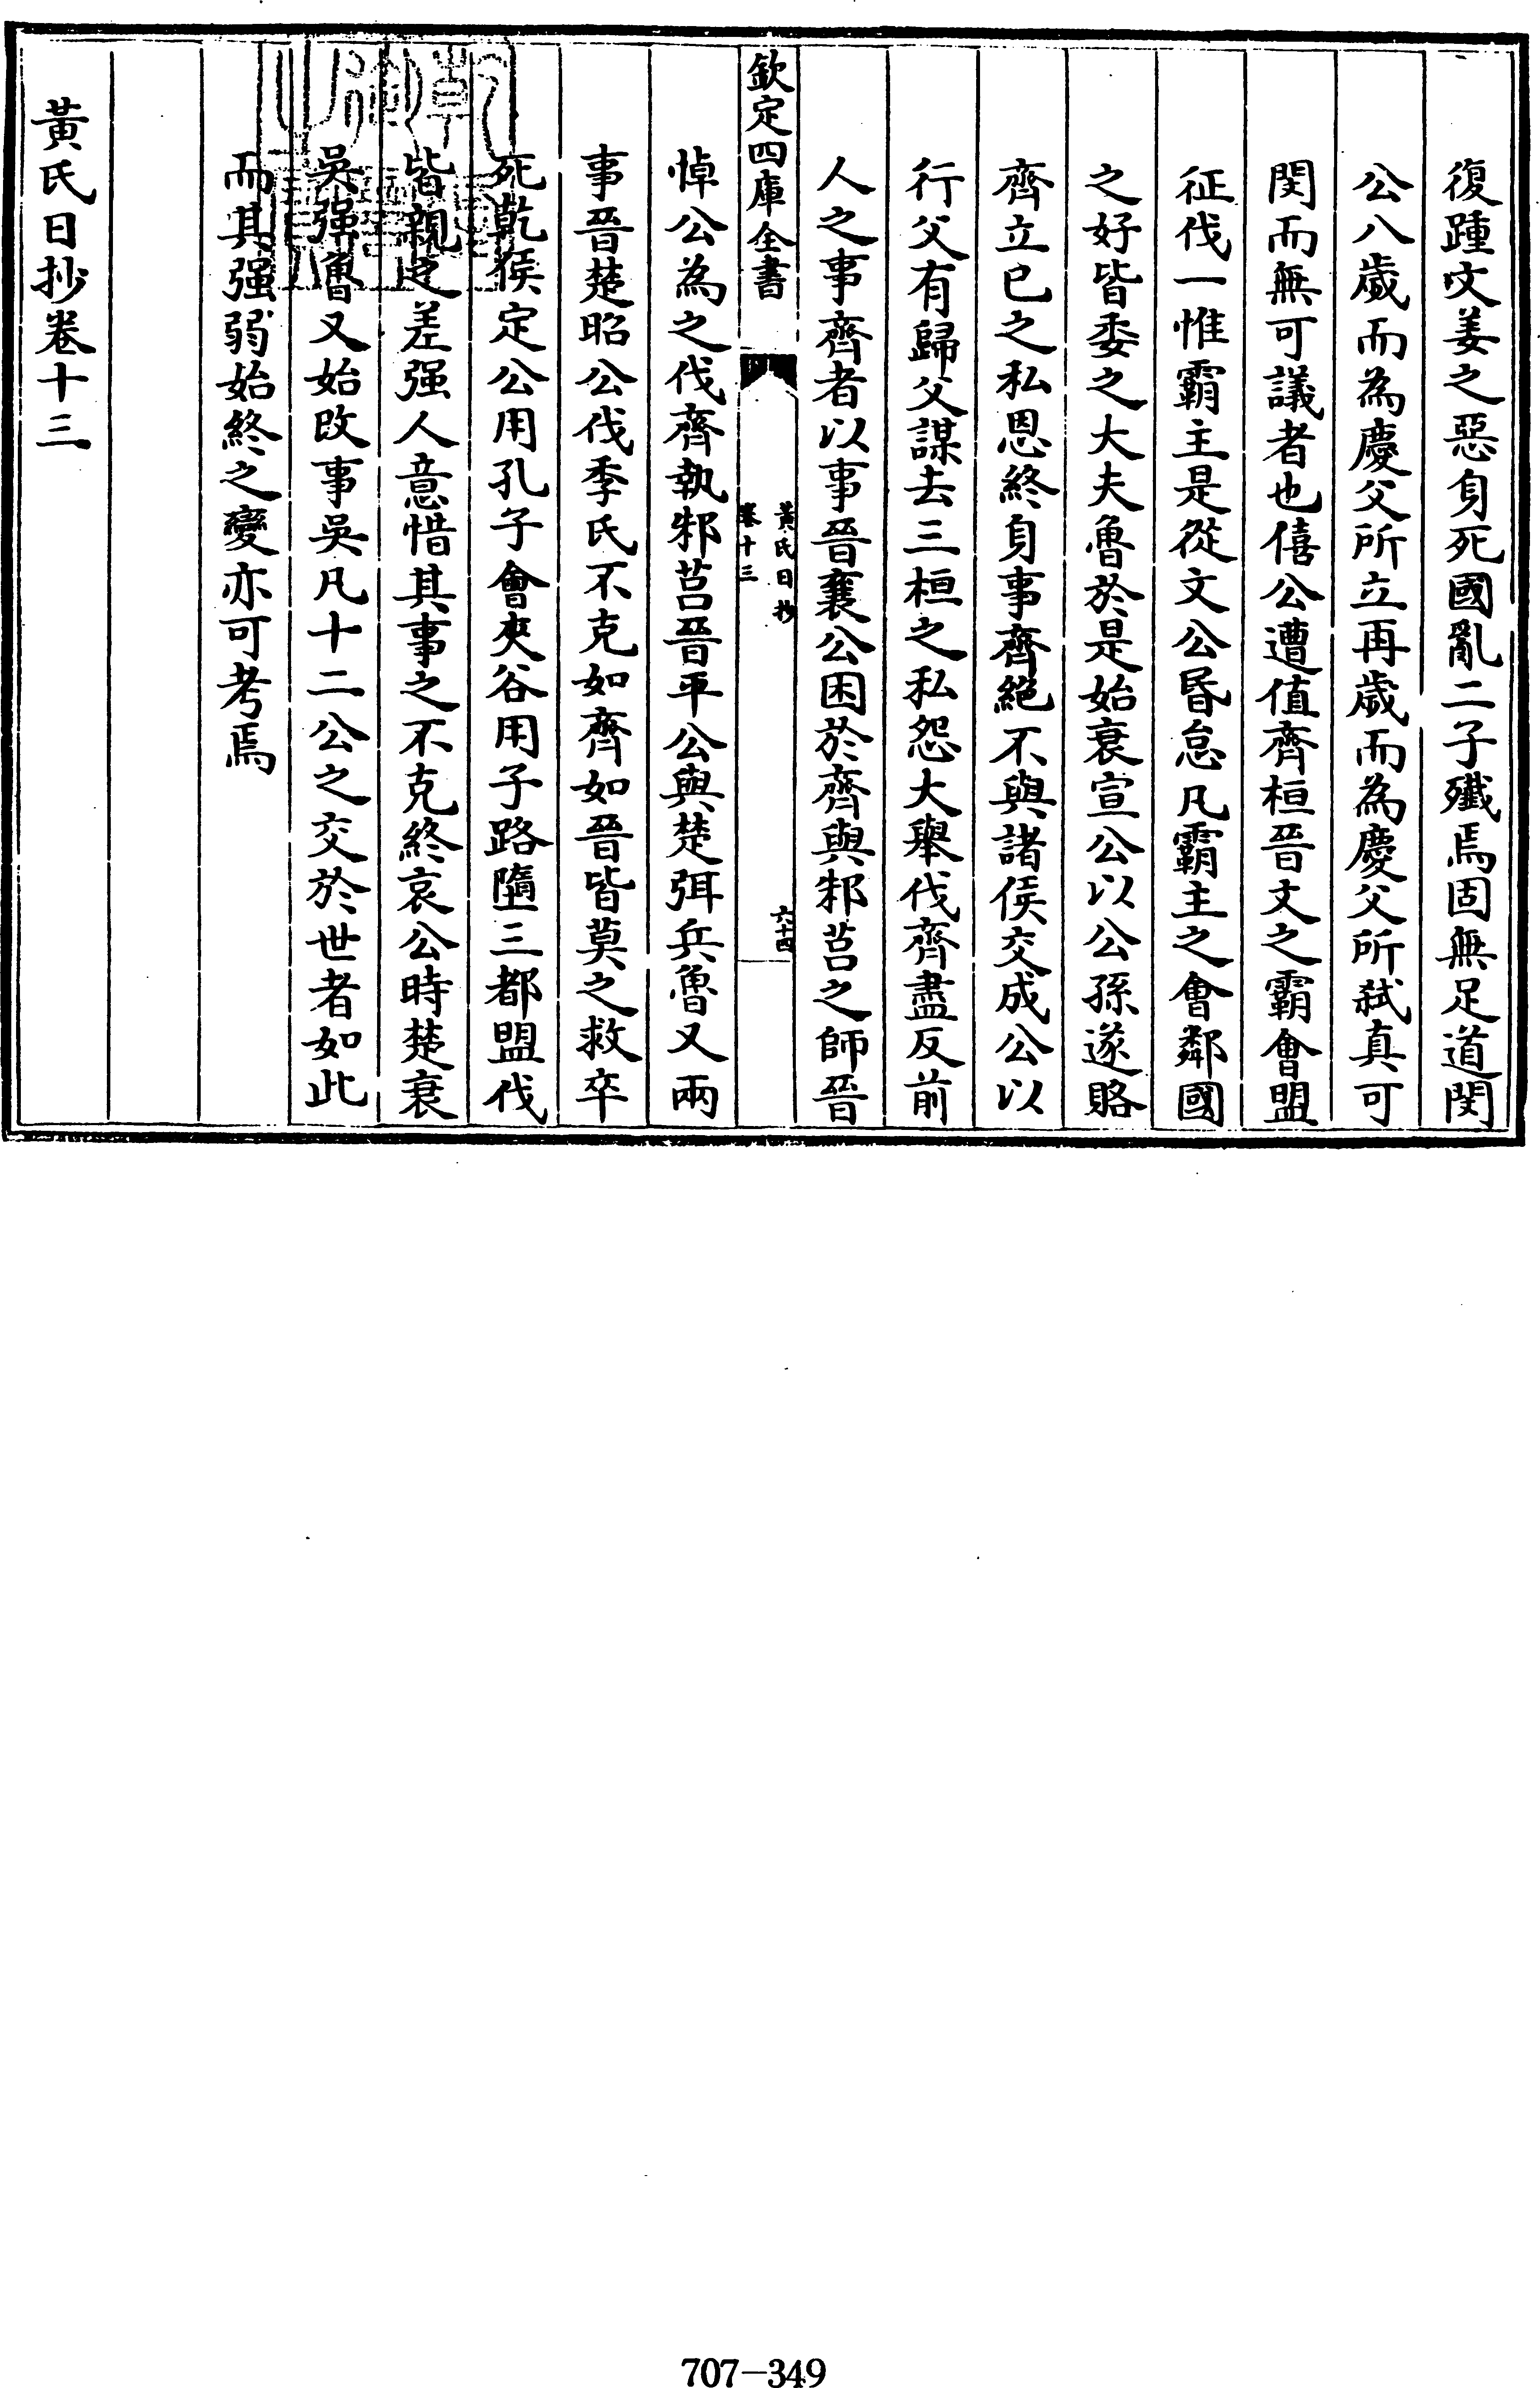 復踵文姜之惡身死國亂二子殱焉固無足道閔
公八歲而為慶父所立再歲而為慶父所弑真可
閔而無可議者也僖公遭值齊桓晉文之霸會盟
征伐一惟霸主是從文公昏怠凡霸主之會鄰國
之好皆委之大夫魯於是始衰宣公以公孫遂賂
齊立已之私恩終身事齊絕不與諸侯交成公以
行父有歸父謀去三桓之私怨大舉伐齊盡反前
人之事齊者以事晉襄公困於齊與邾莒之師晉
欽定四庫全書
黃氏日抄
卷十三
六十四
悼公為之伐齊執邾莒晉平公與楚弭兵魯又兩
事晉楚昭公伐季氏不克如齊如晉皆莫之救卒
死乾侯定公用孔子會夾谷用子路墮三都盟伐
皆親之差强人意惜其事之不克終哀公時楚衰
吳强魯又始改事吳凡十二公之交於世者如此
而其强弱始終之變亦可考焉
黃氏日抄卷十三
707-349